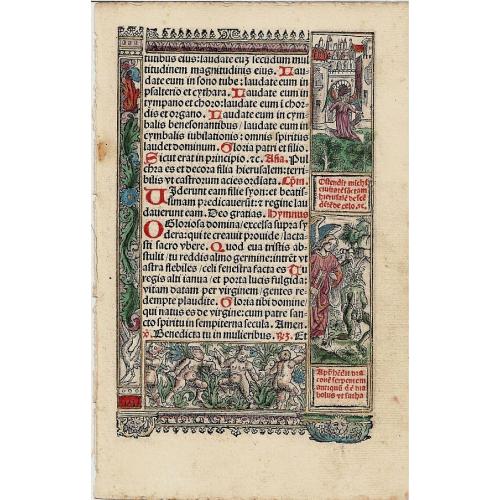 tutibus eius: laudate euȝ secūdum mul
titudinem magnitudinis eius. Laudate
eum in sono tube: laudate eum in
psalterio et cythara. Laudate eum in
tympano et choro: laudate eum ī chor-
dis et organo. Laudate eum in cym-
balis benesonantibus / laudate eum in
cymbalis iubilationis: omnis spiritus
laudet dominum. Gloria patri et filio.
Sicut erat in principio .⁊c. Aña. Pul
chra es et decora filia hierusalem: terri-
bilis vt castrorum acies ordiata. Cap̄m.
Uiderunt eam filie syon: et beatis-
simam predicauerūt: ⁊ regine lau
dauerunt eam. Deo gratias. Hymnus
O Gloriosa domina / excelsa supra sy
dera: qui te creauit prouide / lacta-
sti sacro vbere. Quod eua tristis ab-
stulit / tu reddis almo germine: intrēt vt
astra flebiles / celi fenestra facta es Tu
regis alti ianua / et porta lucis fulgida:
vitam datam per virginem / gentes re-
dempte plaudite. Gloria tibi domine /
qui natus es de virgine: cum patre san-
cto spiritu in sempiterna secula. Amen.
v̄. Benedicta tu in mulieribus. R̄ȝ. Et
Ostendit michi
ciuitatē sāctam
hierusalē descē
dētē de celo. ⁊c.
Apᵒ hēdit dra
conē serpentem
antiquū q̄ ē dia
bolus et satha